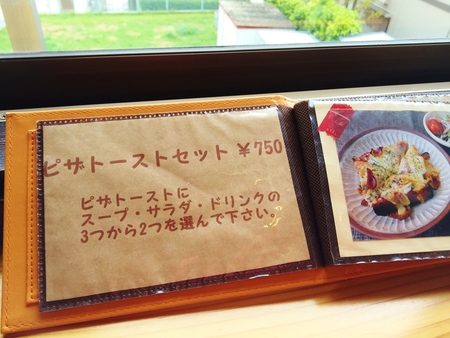 ピザトーストセット ¥750
ピザトーストに
スープ・サラダ・ドリンクの
3つから2つを選んで下さい。